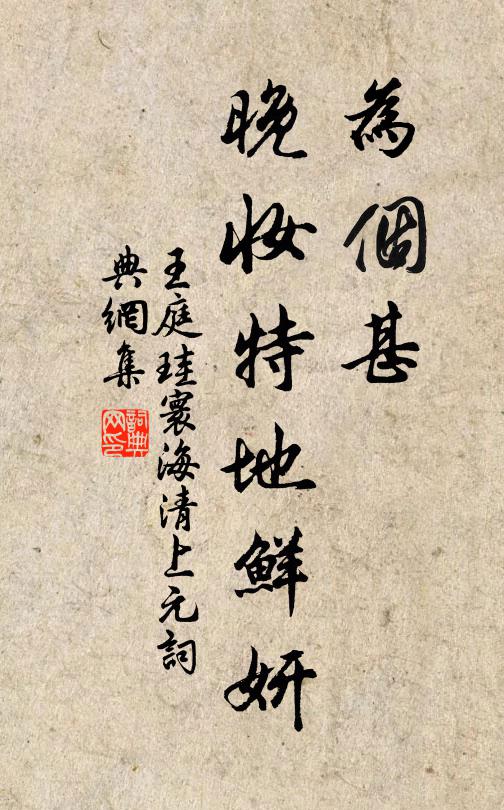 為個甚
晚妝特地鮮妍
王庭珪寰海清上元詞
典網集
詞典网印